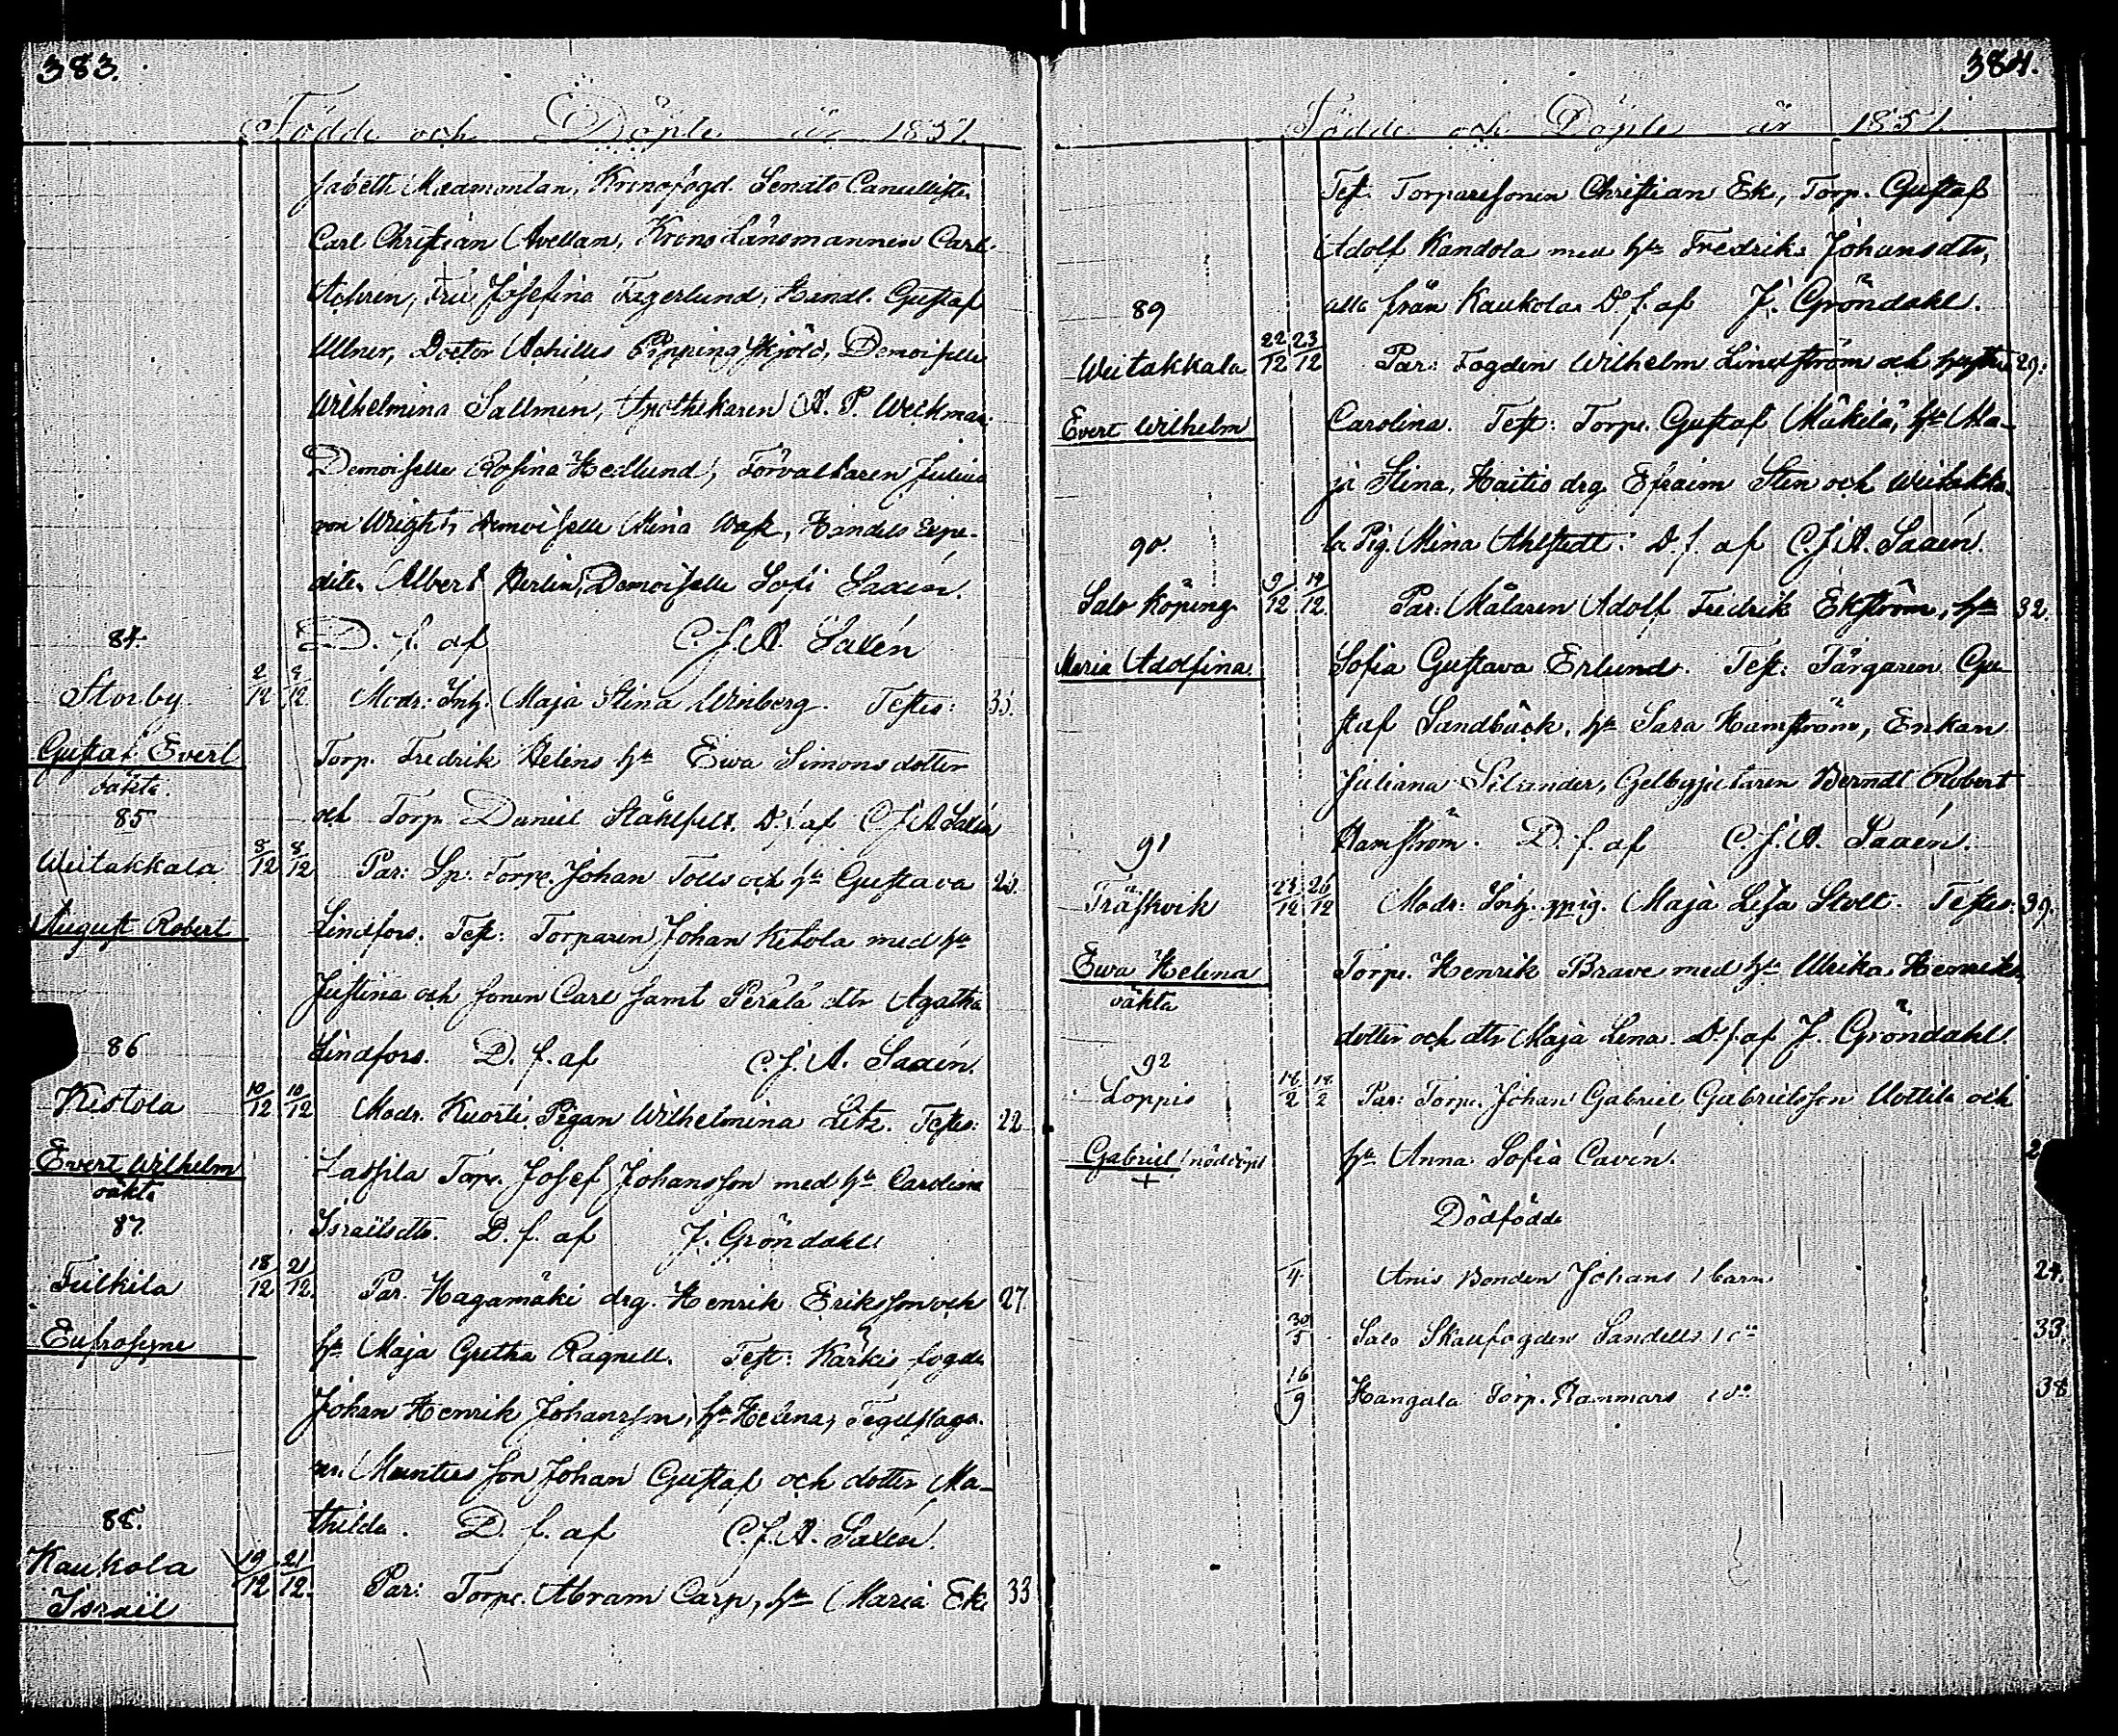 383.
Födde och Döpte år 1851.
sabeth Mædmontan, Kronofogd. Senats Cancellisten
Carl Christian Avellan, Krono Länsmannen Carl
Achren, Fru Josefina Fagerlund, Handl. Gustaf
Ullner, Doctor Achilles Pippingskjöld, Demoiselle
Wilhelmina Sallmén, Apothekaren A. P. Weckman,
Demoiselle Rosina Hedlund, Förvaltaren Julius
von Wright, Demoiselle Mina Wask, Handels Expe-
diten Albert Herlin, Demoiselle Sofi Saxén.
D. f. af C. J. A. Saxén
84.
Storby 2/12 9/12 Modr: Inh. Maja Stina Winberg. Testes: 35.
Gustaf Evert Torp. Fredrik Helins h. Ewa Simonsdotter
oäkta. och Torp. Daniel Stålfelt. D. f. af C J A Saxén
85
Weitakkala 8/12 8/12 Par: Sp. Torp. Johan Tolls och h. Gustava 20.
August Robert Lindfors. Test: Torparen Johan Ketola med h.
Justina och sonen Carl samt Perälä dtr Agatha
Lindfors. D. f. af C. J. A. Saxén.
86
Kistola 10/12 10/12 Modr. Kuorti Pigan Wilhelmina Litz. Testes: 22
Evert Wilhelm Lassila Torp. Josef Johansson med h. Carolina
oäkta Israelsdtr. D. f. af J. Gröndahl
87.
Fulkila 18/12 21/12. Par. Hagamäki drg. Henrik Eriksson och 27.
Eufrosyne h. Maja Greta Ragnell. Test: Kärkis fogde
Johan Henrik Johansson, h. Helena, Tegelslaga-
ren Muntus son Johan Gustaf och dotter Ma-
thilda. D. f. af C. J. A. Saxén.
88.
Kaukola 19/12 21/12. Par: Torp. Abram Carp, h. Maria Ek. 33
Israel
384.
Födde och Döpte år 1851.
Test. Torparesonen Christian Ek, Torp. Gustaf
Adolf Kandola med h. Fredrika Johansdtr,
alla från Kaukola. D. f. af J. Gröndahl.
89
Weitakkala 22/12 23/12 Par: Fogden Wilhelm Lindström och hustru 29.
Evert Wilhelm Carolina. Test: Torp. Gustaf Mäkilä, h. Ma-
ja Stina, Haitio drg Efraim Sten och Weitakka-
la Pig. Mina Ahlstedt. D. f. af C. J. A. Saxén.
90.
Salo Köping 9/12 19/12. Par: Målaren Adolf Fredrik Ekström, h. 32.
Maria Adolfina Sofia Gustava Erlund. Test: Färgaren Gu-
staf Sandbäck, h. Sara Hamström, Enkan
Juliana Silander, Gelbgjutaren Berndt Robert
Hamström. D. f. af C. J. A. Saxén.
91
Träskvik 23/12 26/12 Modr: Inh. pig. Maja Lisa Stolt. Testes: 39.
Ewa Helena Torp. Henrik Brave med h. Ulrika Henriks-
oäkta dotter och dtr Maja Lena. D. f. af J. Gröndahl.
92
Loppis 14/2 14/2 Par: Torp. Johan Gabriel Gabrielsson Uottila och
Gabriel nöddöpt h. Anna Sofia Cavén. 2
+
Dödfödde
/4 Anis Bonden Johans 1 barn 24.
30/5 Salo Skallfogden Sandells 1 do 33.
16/9 Hangala Torp. Rammars 1 do 38